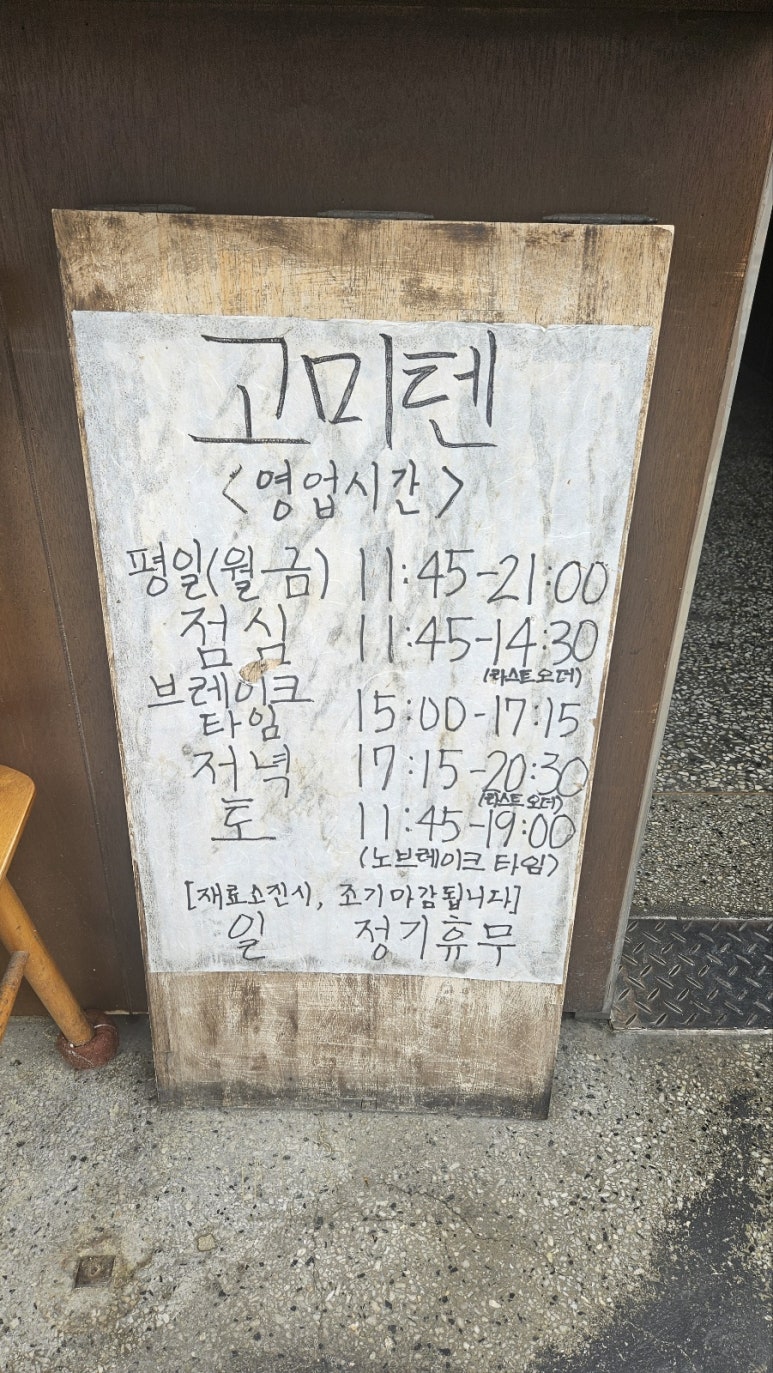 고미텐
<영업시간>
평일(월-금) 11:45-21:00
점심 11:45-14:30
(라스트오더)
브레이크
타임 15:00-17:15
저녁 17:15-20:30
(라스트오더)
토 11:45-19:00
(노브레이크 타임)
[재료소진시, 조기마감됩니다]
일 정기휴무